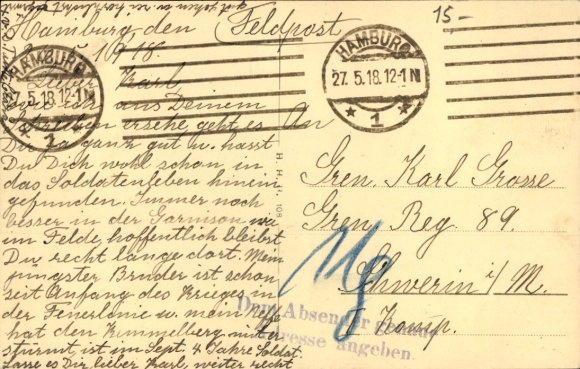 15-
Hamburg, den Feldpost
1918.
HAMBURG
27.5.18.12-1N
* 1 *
HAMBURG
7.5.18.12-1N
* 1
Lieber Karl
wie ich aus Deinem
Schreiben ersehe geht es
Dir ja ganz gut u. hast
Du Dich wohl schon in
das Soldatenleben hinein
gefunden. Immer noch
besser in der Garnison wie
im Felde, hoffentlich bleibst
Du recht lange dort. Mein
jüngster Bruder ist schon
seit Anfang des Krieges in
der Feuerlinie u. mein Neffe
hat den Kemmelberg mitge
stürmt, ist im Sept. 4 Jahre Soldat.
Lasse es Dir lieber Karl, weiter recht
H. H. H. 108
An
Gren. Karl Grosse
Gren. Reg 89.
Schwerin i/M.
Komp.
Dem Absender
Adresse angeben.